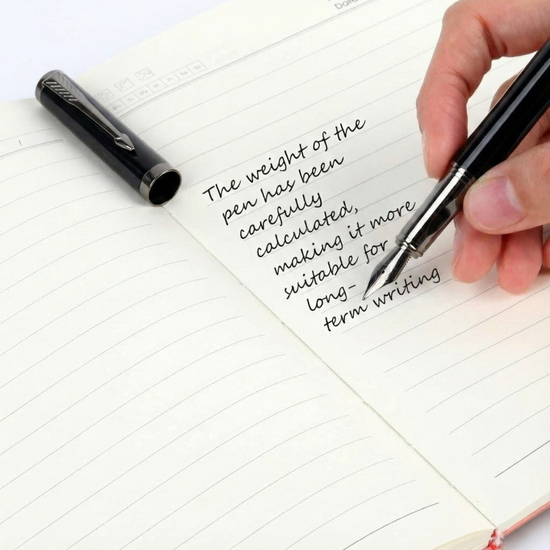 Date
The weight of the
pen has been
carefully
calculated,
making it more
suitable for
long-
term writing